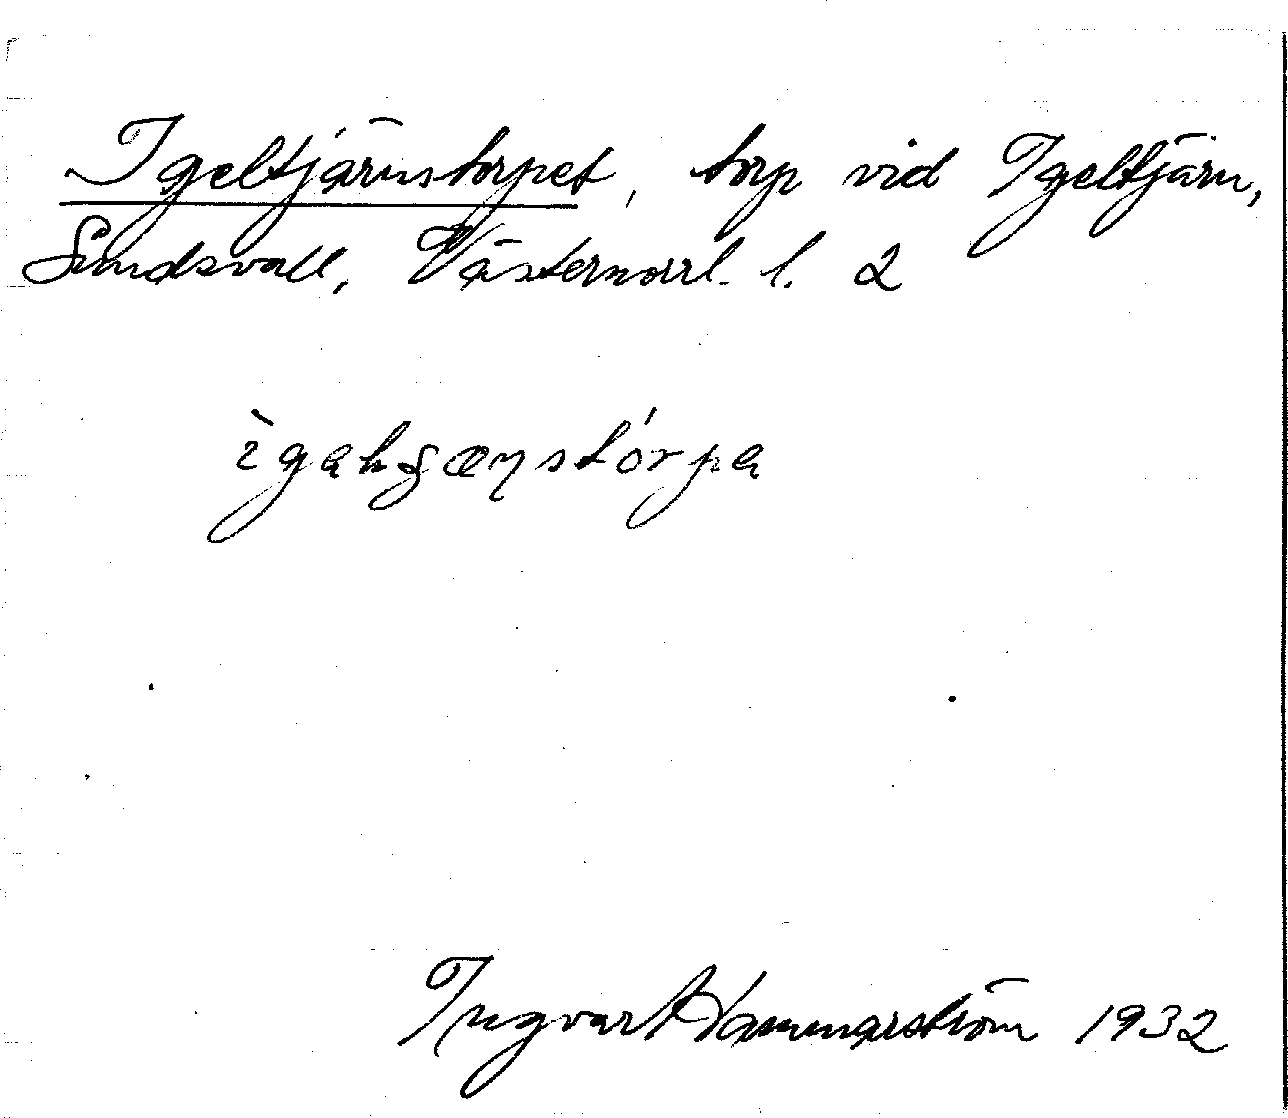 Igeltjärnstorpet, torp vid Igeltjärn,
Sundsvall, Västernorrl. l. 2
Ingvar Hammarström 1932